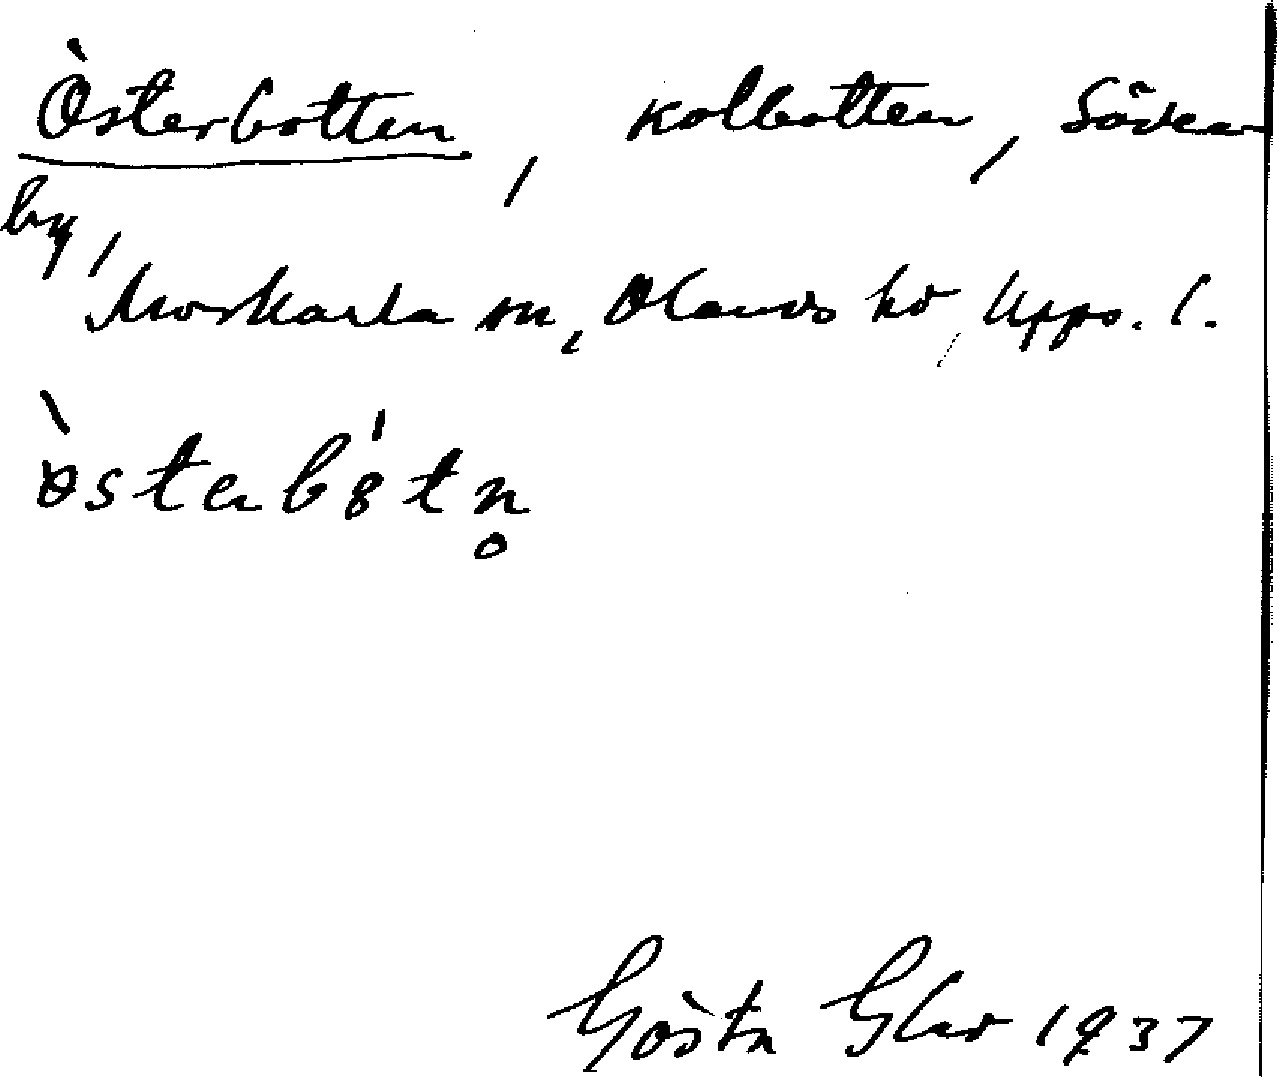 Österbotten, kolbotten, Söder
by,
Morkarla sn, Olands hd, Upps. l.
ö̀sterbȯtn̥
Gösta Glad 1937